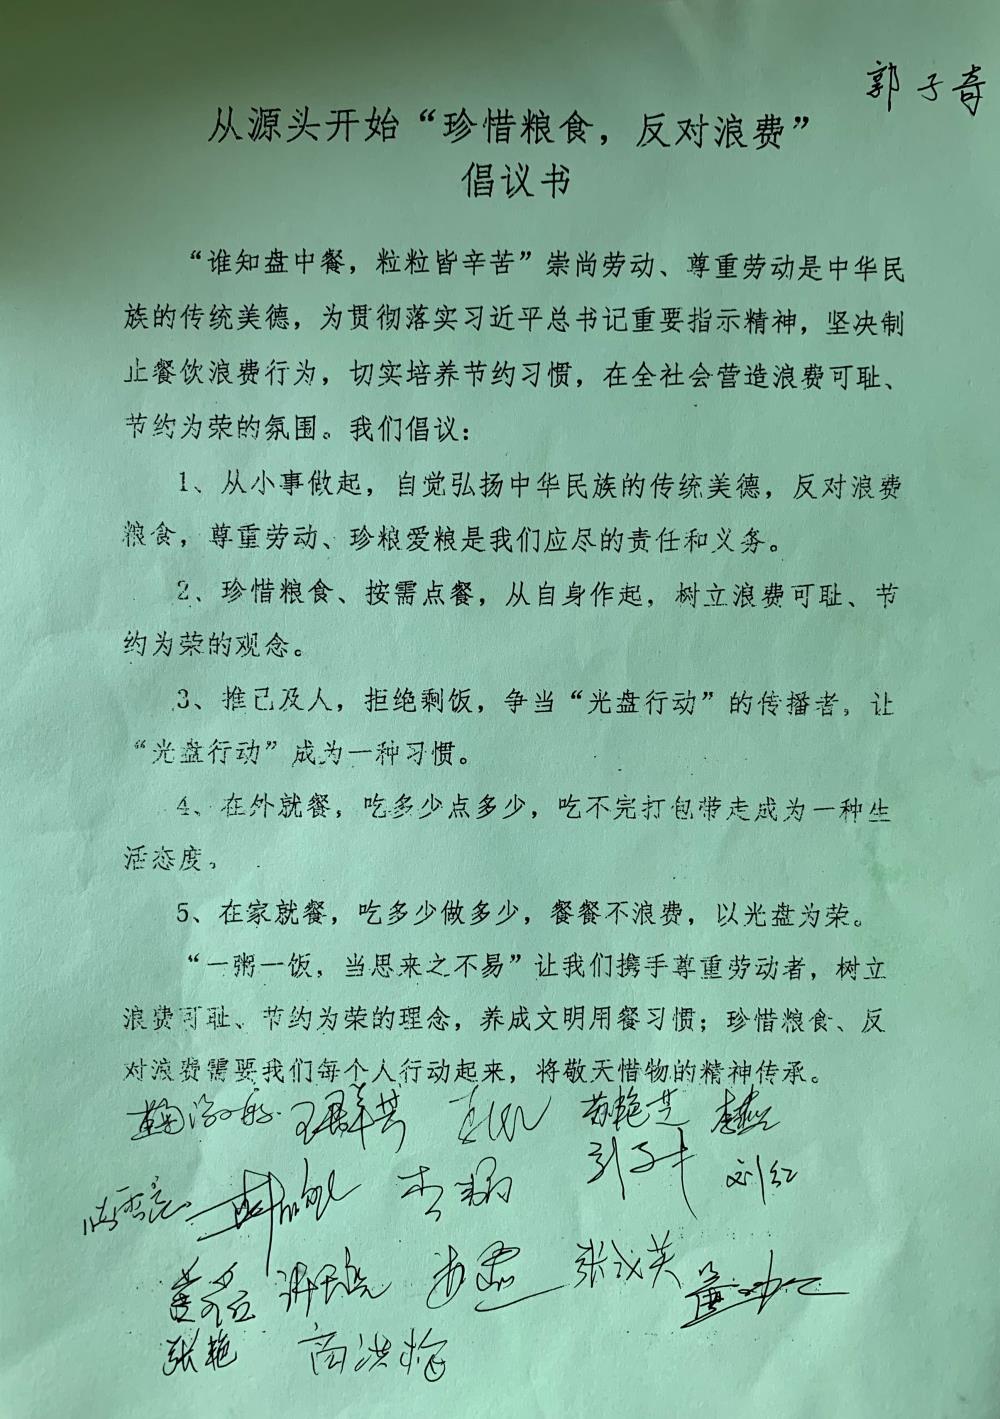 郭子奇
从源头开始“珍惜粮食，反对浪费”
倡议书
“谁知盘中餐，粒粒皆辛苦”崇尚劳动、尊重劳动是中华民
族的传统美德，为贯彻落实习近平总书记重要指示精神，坚决制
止餐饮浪费行为，切实培养节约习惯，在全社会营造浪费可耻、
节约为荣的氛围。我们倡议：
1、从小事做起，自觉弘扬中华民族的传统美德，反对浪费
粮食，尊重劳动、珍粮爱粮是我们应尽的责任和义务。
2、珍惜粮食、按需点餐，从自身作起，树立浪费可耻、节
约为荣的观念。
3、推己及人，拒绝剩饭，争当“光盘行动”的传播者，让
“光盘行动”成为一种习惯。
4、在外就餐，吃多少点多少，吃不完打包带走成为一种生
活态度。
5、在家就餐，吃多少做多少，餐餐不浪费，以光盘为荣。
“一粥一饭，当思来之不易”让我们携手尊重劳动者，树立
浪费可耻、节约为荣的理念，养成文明用餐习惯；珍惜粮食、反
对浪费需要我们每个人行动起来，将敬天惜物的精神传承。
苏艳芝
刘红
张成英
张艳 商洪梅